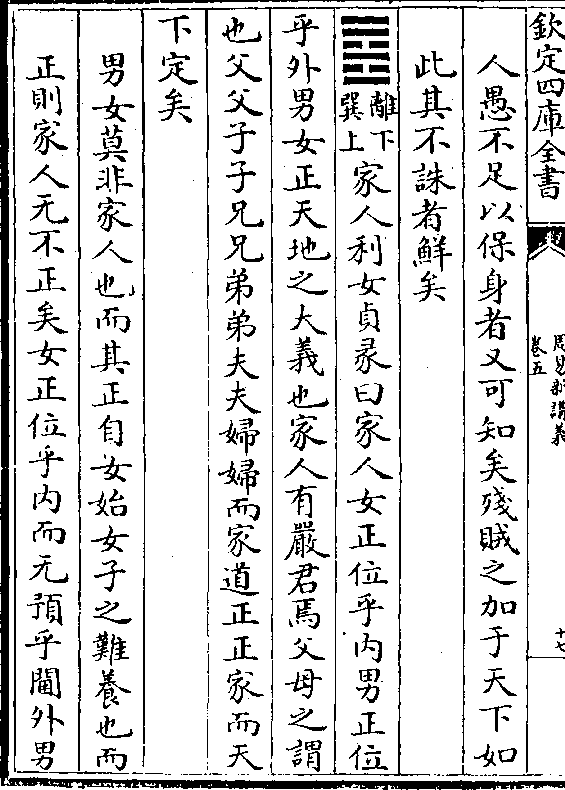 欽定四庫全書
周易新講義
卷五
十七
人愚不足以保身者又可知矣殘賊之加于天下如
此其不誅者鮮矣
䷤離下巽上家人利女貞彖曰家人女正位乎内男正位
乎外男女正天地之大義也家人有嚴君焉父母之謂
也父父子子兄兄弟弟夫夫婦婦而家道正正家而天
下定矣
男女莫非家人也而其正自女始女子之難養也而
正則家人无不正矣女正位乎内而无預乎閫外男